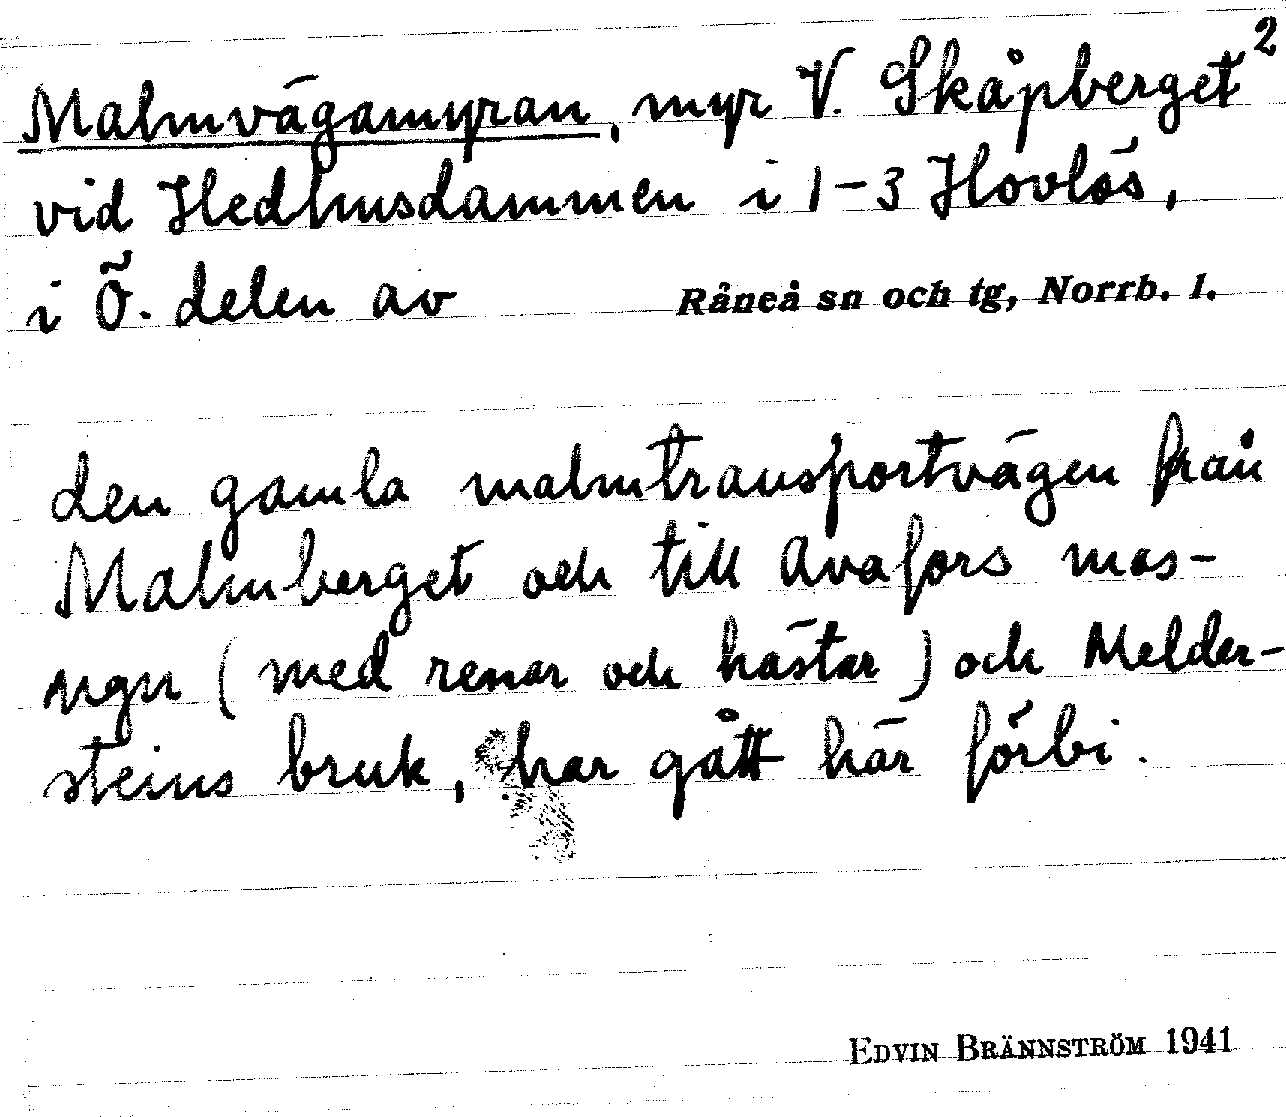 Malmvägamyran, myr V. Skåpberget²
vid Hedhusdammen i 1-3 Hovlös,
i Ö. delen av Råneå sn och tg, Norrb. l.
den gamla malmtransportvägen från
Malmberget och till Avafors mas-
ugn (med renar och hästar) och Melder-
steins bruk, har gått här förbi.
EDVIN BRÄNNSTRÖM 1941